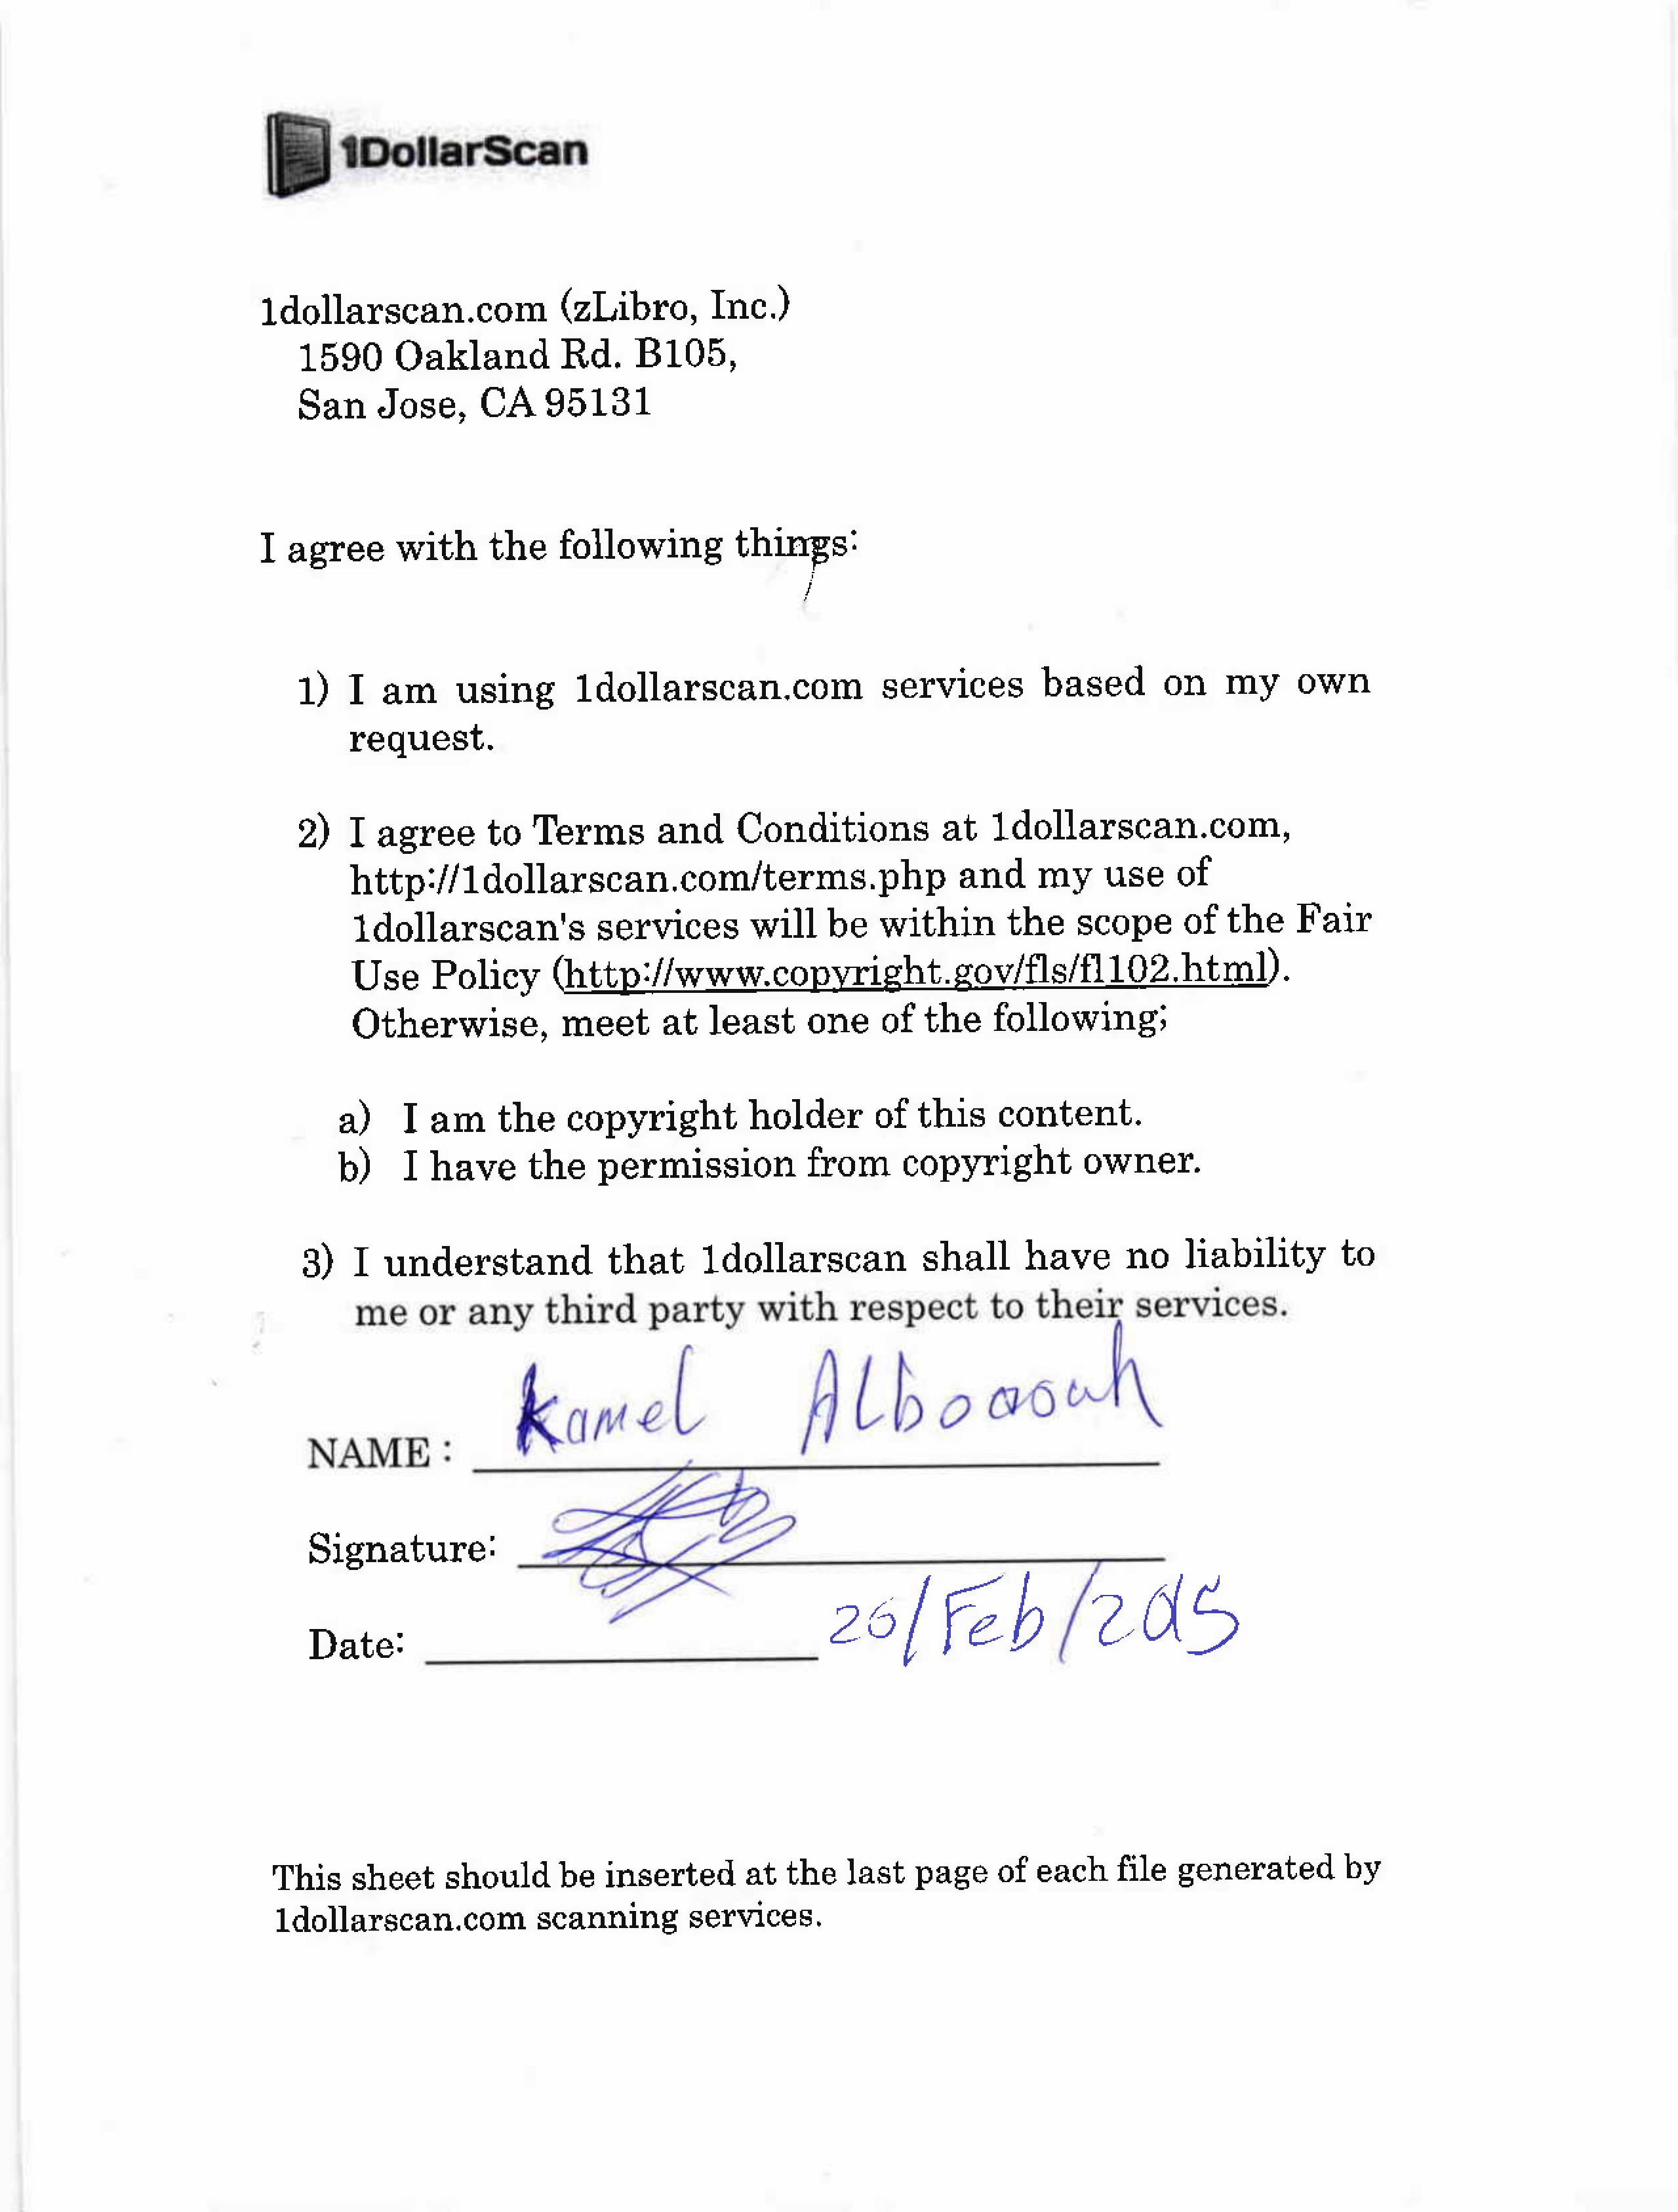 1DollarScan
1dollarscan.com (zLibro, Inc.)
1590 Oakland Rd. B105,
San Jose, CA 95131
I agree with the following things:
1) I am using 1dollarscan.com services based on my own
request.
2) I agree to Terms and Conditions at 1dollarscan.com,
http://1dollarscan.com/terms.php and my use of
1dollarscan's services will be within the scope of the Fair
Use Policy (http://www.copyright.gov/fls/fl102.html).
Otherwise, meet at least one of the following;
a) I am the copyright holder of this content.
b) I have the permission from copyright owner.
3) I understand that 1dollarscan shall have no liability to
me or any third party with respect to their services.
NAME : Kamel
Signature:
Date: /Feb/2015
This sheet should be inserted at the last page of each file generated by
1dollarscan.com scanning services.